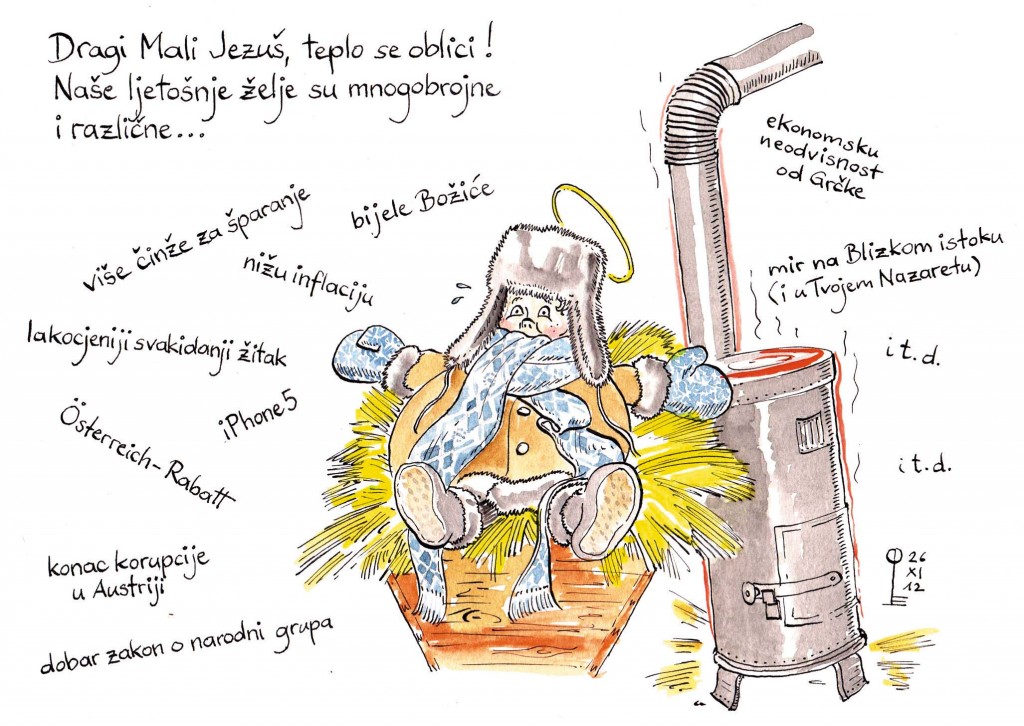 Dragi Mali Jezuš, teplo se oblici!
Naše ljetošnje želje su mnogobrojne
i različne...
ekonomsku
neodvisnost
od Grčke
više činže za šparanje
bijele Božiće
nižu inflaciju
mir na Blizkom istoku
(i u Tvojem Nazaretu)
lakocjeniji svakidanji žitak
i t. d.
iPhone 5
Österreich-Rabatt
i t. d.
konac korupcije
u Austriji
26
XI
12
dobar zakon o narodni grupa